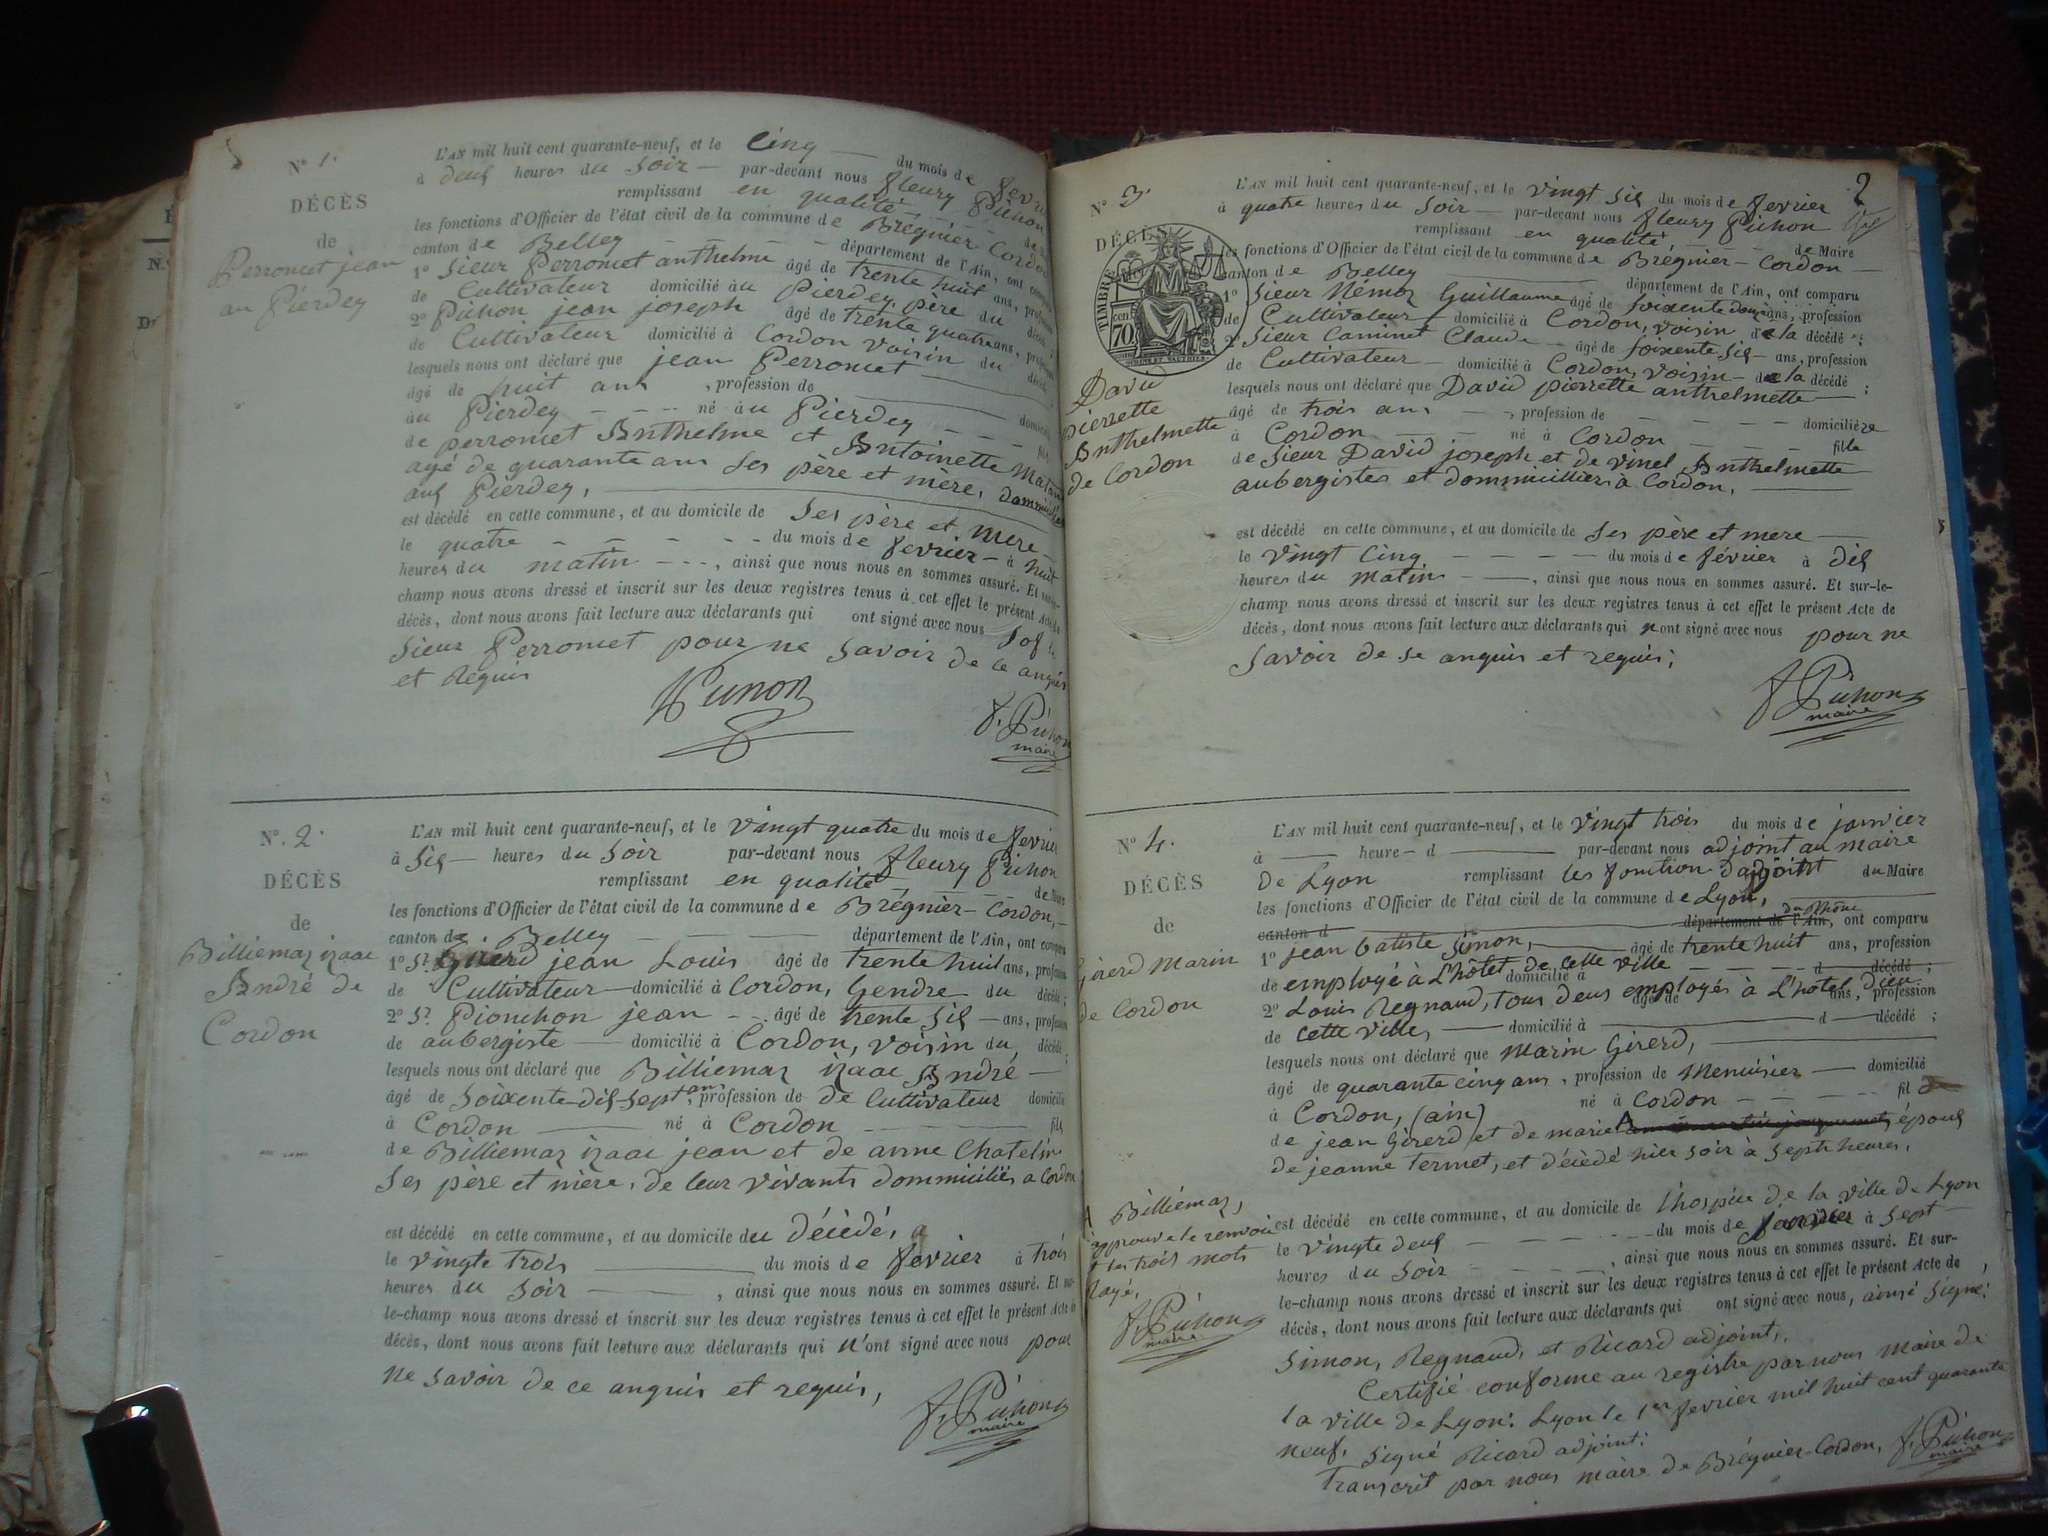 N° 1.
DÉCÈS
de
Perromet jean
au Pierdey
L'AN mil huit cent quarante-neuf, et le Cinq du mois de fevrier
à deux heures du Soir par-devant nous fleury Pichon
remplissant en qualité de
les fonctions d'Officier de l'état civil de la commune de Brégnier Cordon
canton de Belley département de l'Ain, ont comparu
1° Sieur Perromet anthelme âgé de trente huit ans, profession
de Cultivateur domicilié au Pierdey, père du décédé;
2° Pichon jean joseph âgé de trente quatre ans, profession
de Cultivateur domicilié à Cordon voisin du décédé
lesquels nous ont déclaré que jean Perromet
âgé de huit ans, profession de domicilié
au Pierdey né au Pierdey fils
de perromet Anthelme et Antoinette
agé de quarante ans Ses père et mère, dommiciliés
aux Pierdey,
est décédé en cette commune, et au domicile de Ses père et mere
le quatre du mois de fevrier à huit
heures du matin, ainsi que nous nous en sommes assuré. Et sur-le-
champ nous avons dressé et inscrit sur les deux registres tenus à cet effet le présent Acte de
décès, dont nous avons fait lecture aux déclarants qui ont signé avec nous Sof le
Sieur Perromet pour ne Savoir de ce anquis
et Réquis
Pichon
f. Pichon
maire
N°. 2.
DÉCÈS
de
Billiemaz izaac
André de
Cordon
L'AN mil huit cent quarante-neuf, et le Vingt quatre du mois de fevrier
à Six heures du Soir par-devant nous fleury Pichon
remplissant en qualité de Maire
les fonctions d'Officier de l'état civil de la commune de Brégnier-Cordon,
canton de Belley département de l'Ain, ont comparu
1° Sr. Girerd jean Louis âgé de trente huit ans, profession
de Cultivateur domicilié à Cordon, Gendre du décédé;
2° Sr. Pionchon jean âgé de trente Six ans, profession
de aubergiste domicilié à Cordon, voisin du décédé;
lesquels nous ont déclaré que Billiemaz izaac André
âgé de Soixente-dix Sept ans, profession de de Cultivateur domicilié
à Cordon né à Cordon fils
de Billiemaz izaac jean et de anne Chatelin
Ses père et mère, de leur vivants dommiciliés a Cordon
est décédé en cette commune, et au domicile du décèdé,
le vingte trois du mois de fevrier à trois
heures du Soir, ainsi que nous nous en sommes assuré. Et sur-
le-champ nous avons dressé et inscrit sur les deux registres tenus à cet effet le présent Acte de
décès, dont nous avons fait lecture aux déclarants qui n'ont signé avec nous pour
ne Savoir de ce anquis et requis,
f. Pichon
maire
2
N° 3.
DÉCÈS
TIMBRE
cen
70
David
pierrette
Anthelmette
de Cordon
L'AN mil huit cent quarante-neuf, et le vingt Six du mois de fevrier
à quatre heures du Soir par-devant nous fleury Pichon
remplissant en qualité, de Maire
les fonctions d'Officier de l'état civil de la commune de Brégnier-Cordon
canton de Belley département de l'Ain, ont comparu
1° Sieur Némoz Guillaume âgé de Soixente douze ans, profession
de Cultivateur domicilié à Cordon, voisin de la décédé;
2° Sieur Caminet Claude âgé de Soixente Six ans, profession
de Cultivateur domicilié à Cordon, voisin de la décédé;
lesquels nous ont déclaré que David pierrette anthelmette
âgé de trois ans, profession de domicilière
à Cordon né à Cordon fille
de Sieur David joseph et de vinel Anthelmette
aubergistes et dommicilliers à Cordon,
est décédé en cette commune, et au domicile de Ses père et mere
le vingt Cinq du mois de février à dix
heures du Matin, ainsi que nous nous en sommes assuré. Et sur-le-
champ nous avons dressé et inscrit sur les deux registres tenus à cet effet le présent Acte de
décès, dont nous avons fait lecture aux déclarants qui n'ont signé avec nous pour ne
Savoir de se anquis et requis;
f. Pichon
maire
N° 4.
DÉCÈS
de
Girerd Marin
de Cordon
L'AN mil huit cent quarante-neuf, et le vingt trois du mois de janvier
à heure d par-devant nous adjoint au maire
de Lyon remplissant les fonction d'adjoint du Maire
les fonctions d'Officier de l'état civil de la commune de Lyon,
canton d département de l'Ain, du Rhône ont comparu
1° jean batiste Simon, âgé de trente huit ans, profession
de employé à L'hôtel de cette ville domicilié à d décédé;
2° Louis Regnaud, tous deux employés à L'hôtel Dieu âgé de ans, profession
de cette ville, domicilié à d décédé;
lesquels nous ont déclaré que Marin Girerd,
âgé de quarante cinq ans, profession de Menuisier domicilié
à Cordon, (ain) né à Cordon fil
de jean Girerd et de marie A époux
de jeanne termet, et décèdé hier soir à Sept heures,
est décédé en cette commune, et au domicile de l'hospice de la ville de Lyon
le vingte deux du mois de janvier à Sept
heures du Soir, ainsi que nous nous en sommes assuré. Et sur-
le-champ nous avons dressé et inscrit sur les deux registres tenus à cet effet le présent Acte de
décès, dont nous avons fait lecture aux déclarants qui ont signé avec nous, ainsi Signé:
Simon, Regnaud, et Ricard adjoint,
Certifié conforme au registre par nous maire de
la ville de Lyon: Lyon le 1er fevrier mil huit cent quarante
neuf, Signé Ricard adjoint:
Transcrit par nous maire de Brégnier-Cordon, f. Pichon
maire
A Billiemaz,
approuve le renvoi
et les trois mots
rayé,
f. Pichon
maire